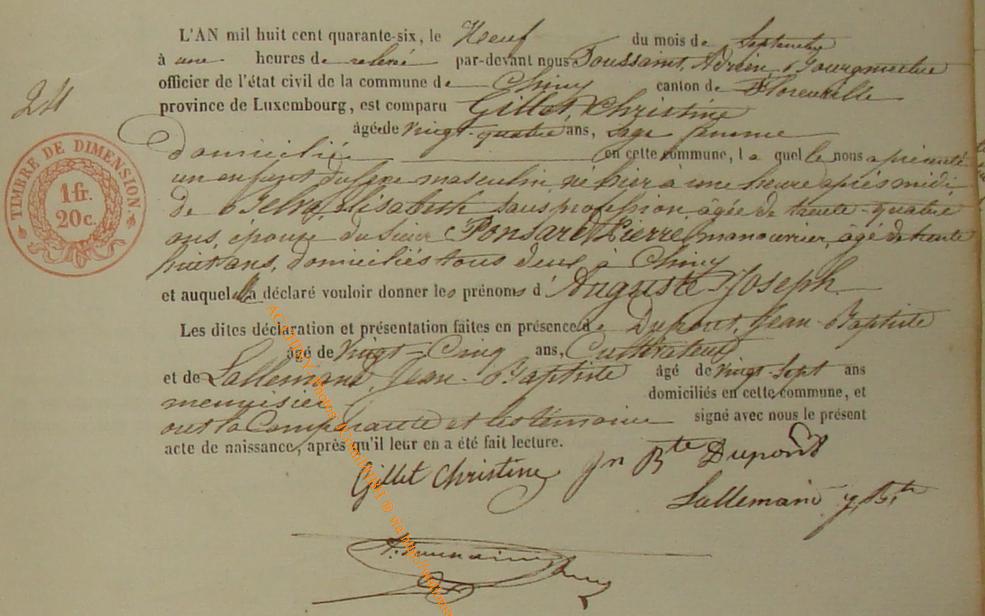 L'AN mil huit cent quarante-six, le Neuf du mois de Septembre
à une heures de relevé par-devant nous Toussaint, Adrien Bourgmestre
officier de l'état civil de la commune de Chiny canton de Florenville
province de Luxembourg, est comparu Gillet, Christine
âgé de vingt-quatre ans, sage femme
domiciliée en cette commune, la quelle nous a présenté
un enfant du sexe masculin, né hier à une heure après midi
de Elisabeth sans profession âgée de trente-quatre
ans, epouse du Sieur Ponsard Pierre manouvrier, âgé de trente
huit ans, domiciliés tous deux à Chiny
et auquel elle a déclaré vouloir donner les prénoms d'Auguste Joseph
Les dites déclaration et présentation faites en présence de Dupont, Jean-Baptiste
âgé de Vingt-Cinq ans, Cultivateur
et de Lallemand, Jean-Baptiste âgé de vingt-sept ans
menuisier domiciliés en cette commune, et
ont la Comparante et les témoins signé avec nous le présent
acte de naissance, après qu'il leur en a été fait lecture.
Gillet Christine Jn Bte Dupont
Lallemand J. Bte
24
TIMBRE DE DIMENSION
1 fr.
20 c.